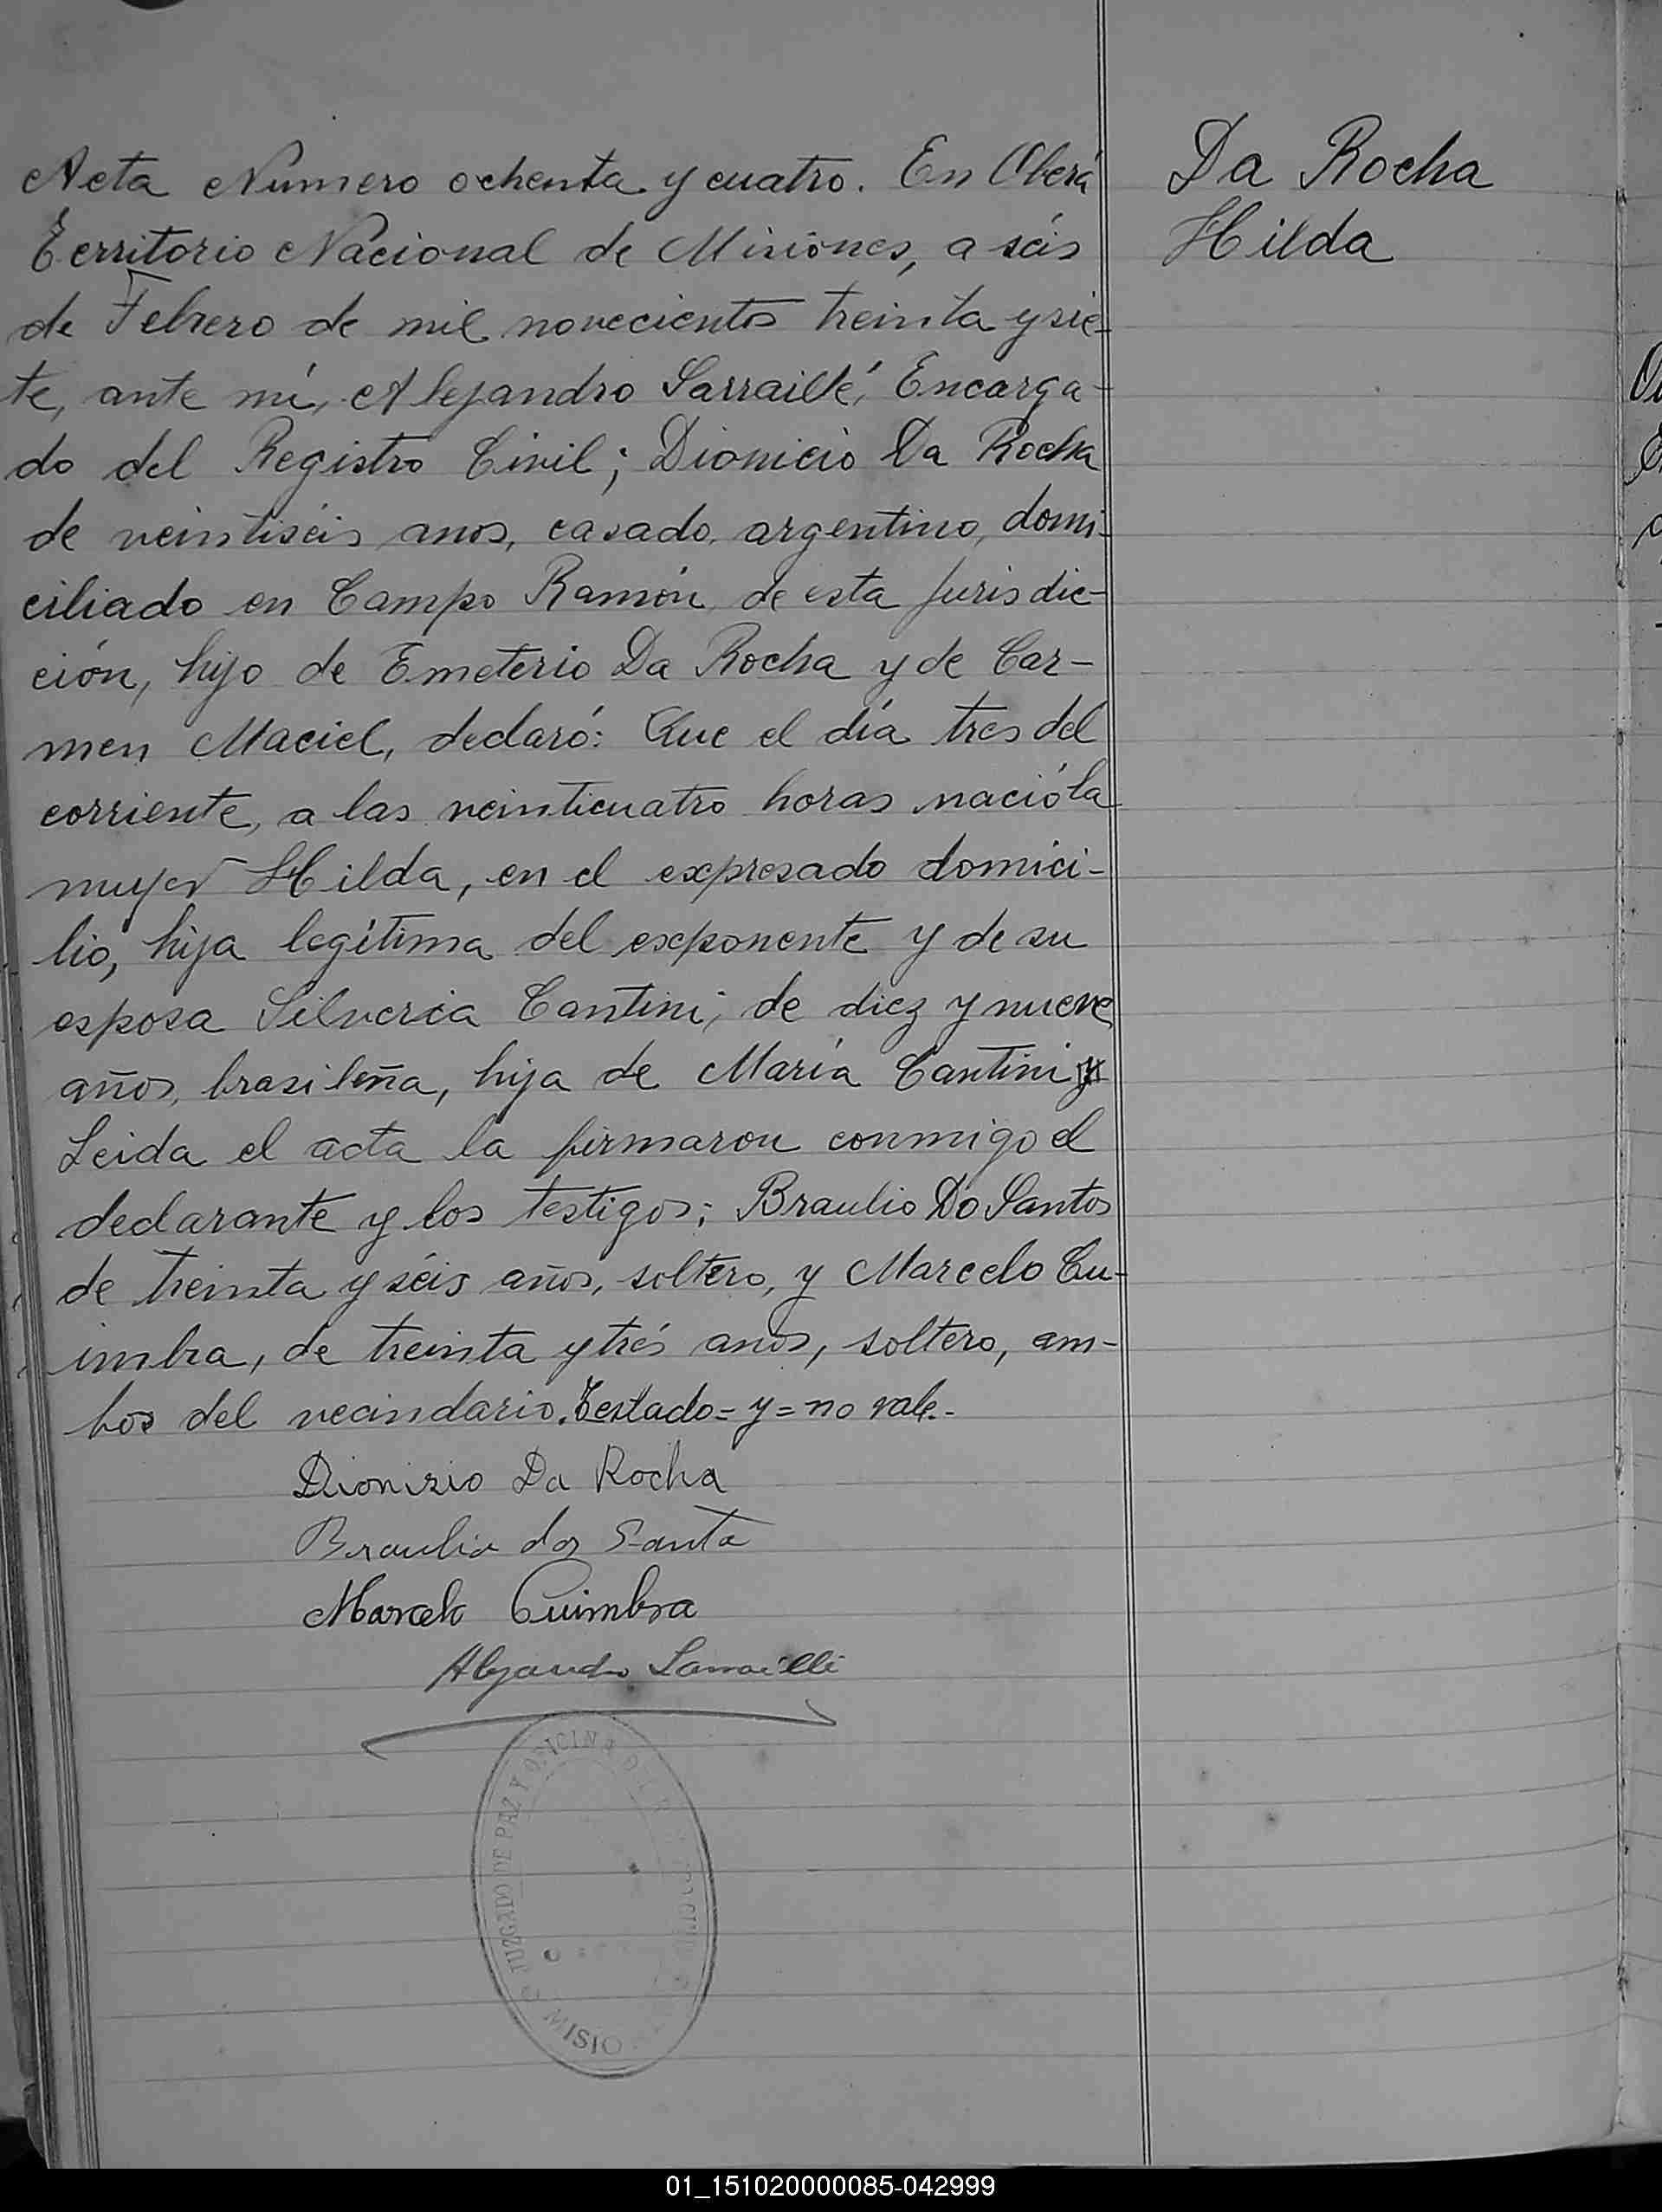 Acta Numero ochenta y cuatro. En Oberá
Territorio Nacional de Misiones, a seis
de Febrero de mil novecientos treinta y sie-
te, ante mí, Alejandro Sarraillé, Encarga-
do del Registro Civil; Dionicio Da Rocha
de veintiséis anos, casado, argentino, domi-
ciliado en Campo Ramón de esta jurisdic-
ción, hijo de Emeterio Da Rocha y de Car-
men Maciel, declaró: Que el día tres del
corriente, a las veinticuatro horas nació la
mujer Hilda, en el expresado domici-
lio, hija legítima del exponente y de su
esposa Silveria Cantini, de diez y nueve
años, brasileña, hija de María Cantini y
Leida el acta la firmaron conmigo el
declarante y los testigos; Braulio Do Santos
de treinta y séis años, soltero, y Marcelo Cu-
imbra, de treinta y trés anos, soltero, am-
bos del vecindario. Testado = y = no vale.-
Dionisio Da Rocha
Braulio dos Santo
Marcelo Cuimbra
Alejandro Sarraillé
JUZGADO DE PAZ Y OFICINA DEL
MISIO
Da Rocha
Hilda
01_151020000085-042999